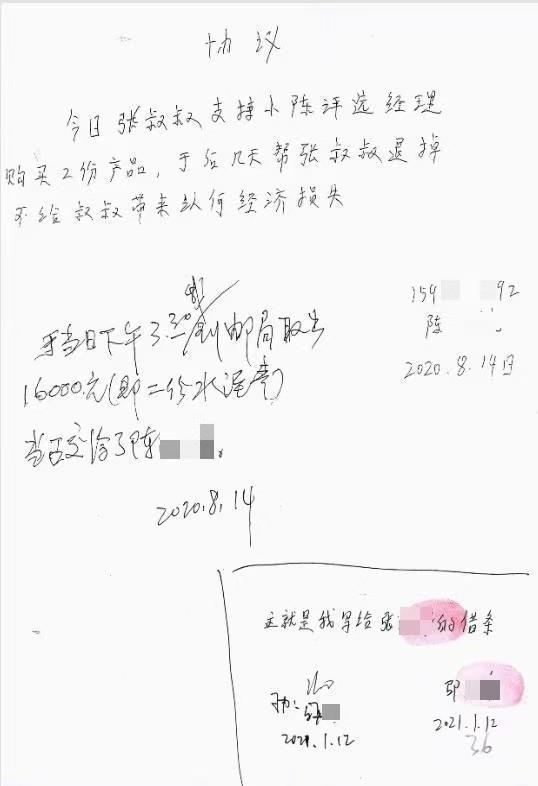 协 议
今日张叔叔支持小陈评选经理
购买2份产品，于后几天帮张叔叔退掉
不给叔叔带来任何经济损失
159 92
陈
2020.8.14日
于当日下午3:30 到邮局取出
16000元(即二份水
当面交给了陈 。
2020.8.14
这就是我写给张 的借条
2021.1.12
2021.1.12
36